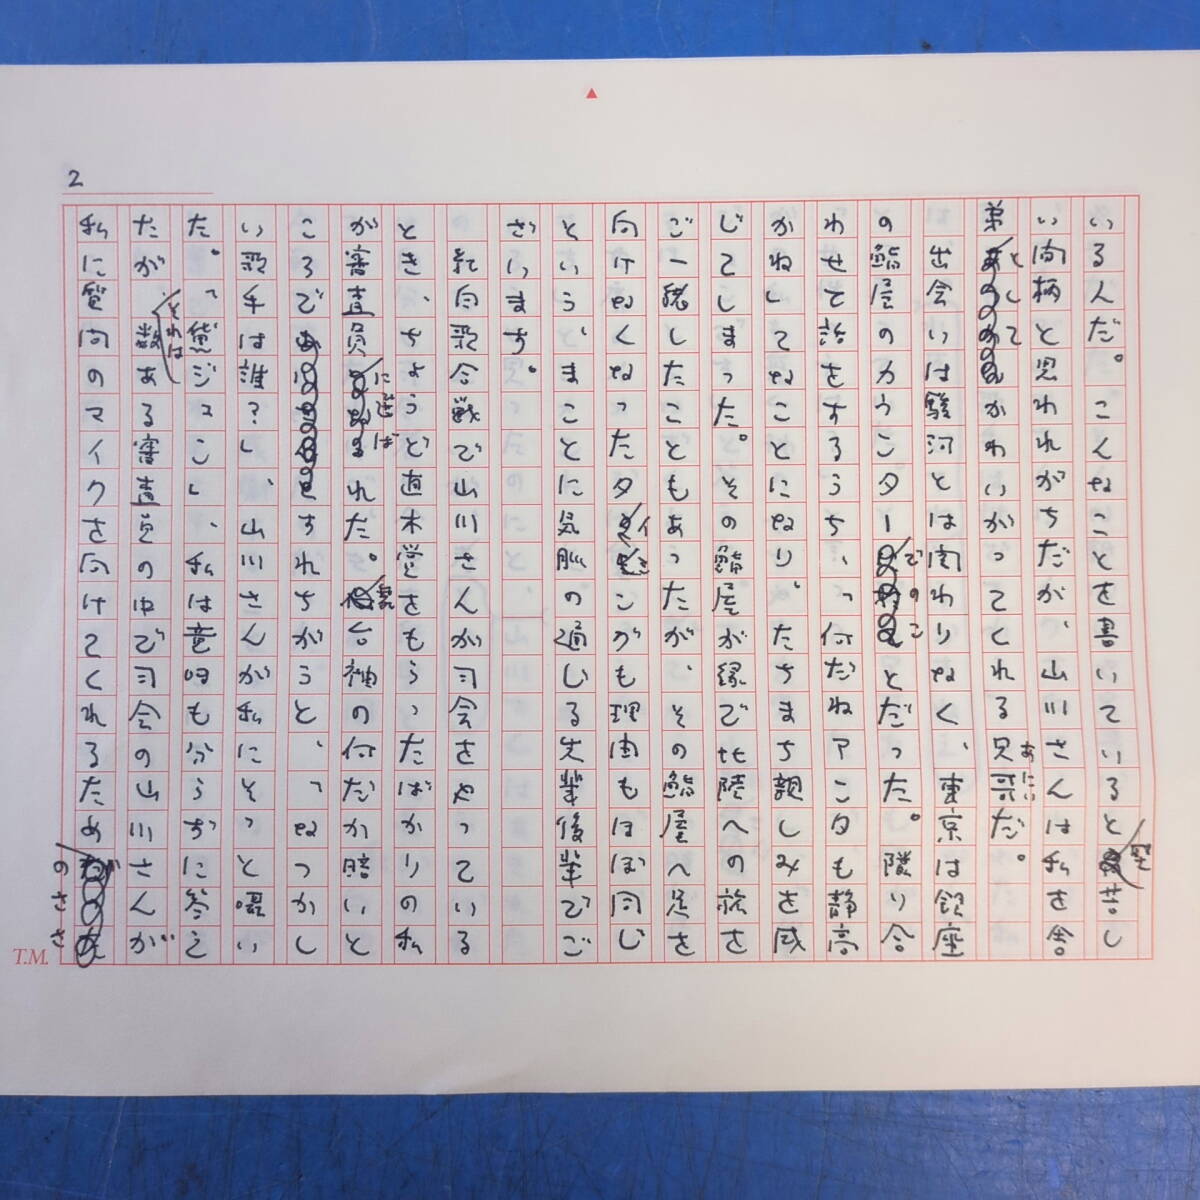 2
いるんだ。こんなことを書いていると堅苦し
い間柄と思われがちだが、山川さんは私を舎
弟としてかわいがってくれる兄哥だ。
あにい
出会いは駿河とは関わりなく、東京は銀座
の鮨屋のカウンターでのことだった。隣り合
わせて話をするうち、って何だねアコタも静高
かねしてなことになり、たちまち親しみを感
じてしまった。その鮨屋が縁で北陸への旅を
ご一緒したこともあったが、その鮨屋へ足を
向けなくなったタイミングも理由もほぼ同じ
という、まことに気脈の通じる先輩後輩でご
ざいます。
紅白歌合戦で山川さんが司会をやっている
とき、ちょうど直木賞をもらったばかりの私
が審査員に選ばれた。舞台袖の何だか暗いと
ころですれちがうと、「なつかし
い歌手は誰?」、山川さんが私にそっと囁い
た。「黛ジュン」、私は意味も分らずに答え
たが、それは数ある審査員の中で司会の山川さんが
私に質問のマイクを向けてくれるためのささ
T.M.